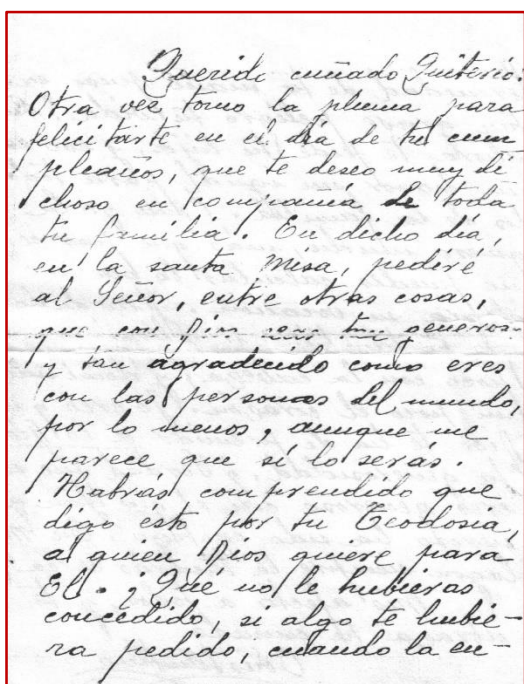 Querido cuñado Quiterio:
Otra vez tomo la pluma para
felicitarte en el día de tu cum
pleaños, que te deseo muy di
choso en compañía de toda
tu familia. En dicho día,
en la santa misa, pediré
al Señor, entre otras cosas,
que con Dios seas tan generoso
y tan agradecido como eres
con las personas del mundo,
por lo menos, aunque me
parece que sí lo serás.
Habrás comprendido que
digo ésto por tu Teodosia,
a quien Dios quiere para
El. ¿Qué no le hubieras
concedido, si algo te hubie-
ra pedido, cuando la en-